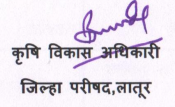 कृषि विकास अधिकारी
जिल्हा परीषद,लातूर